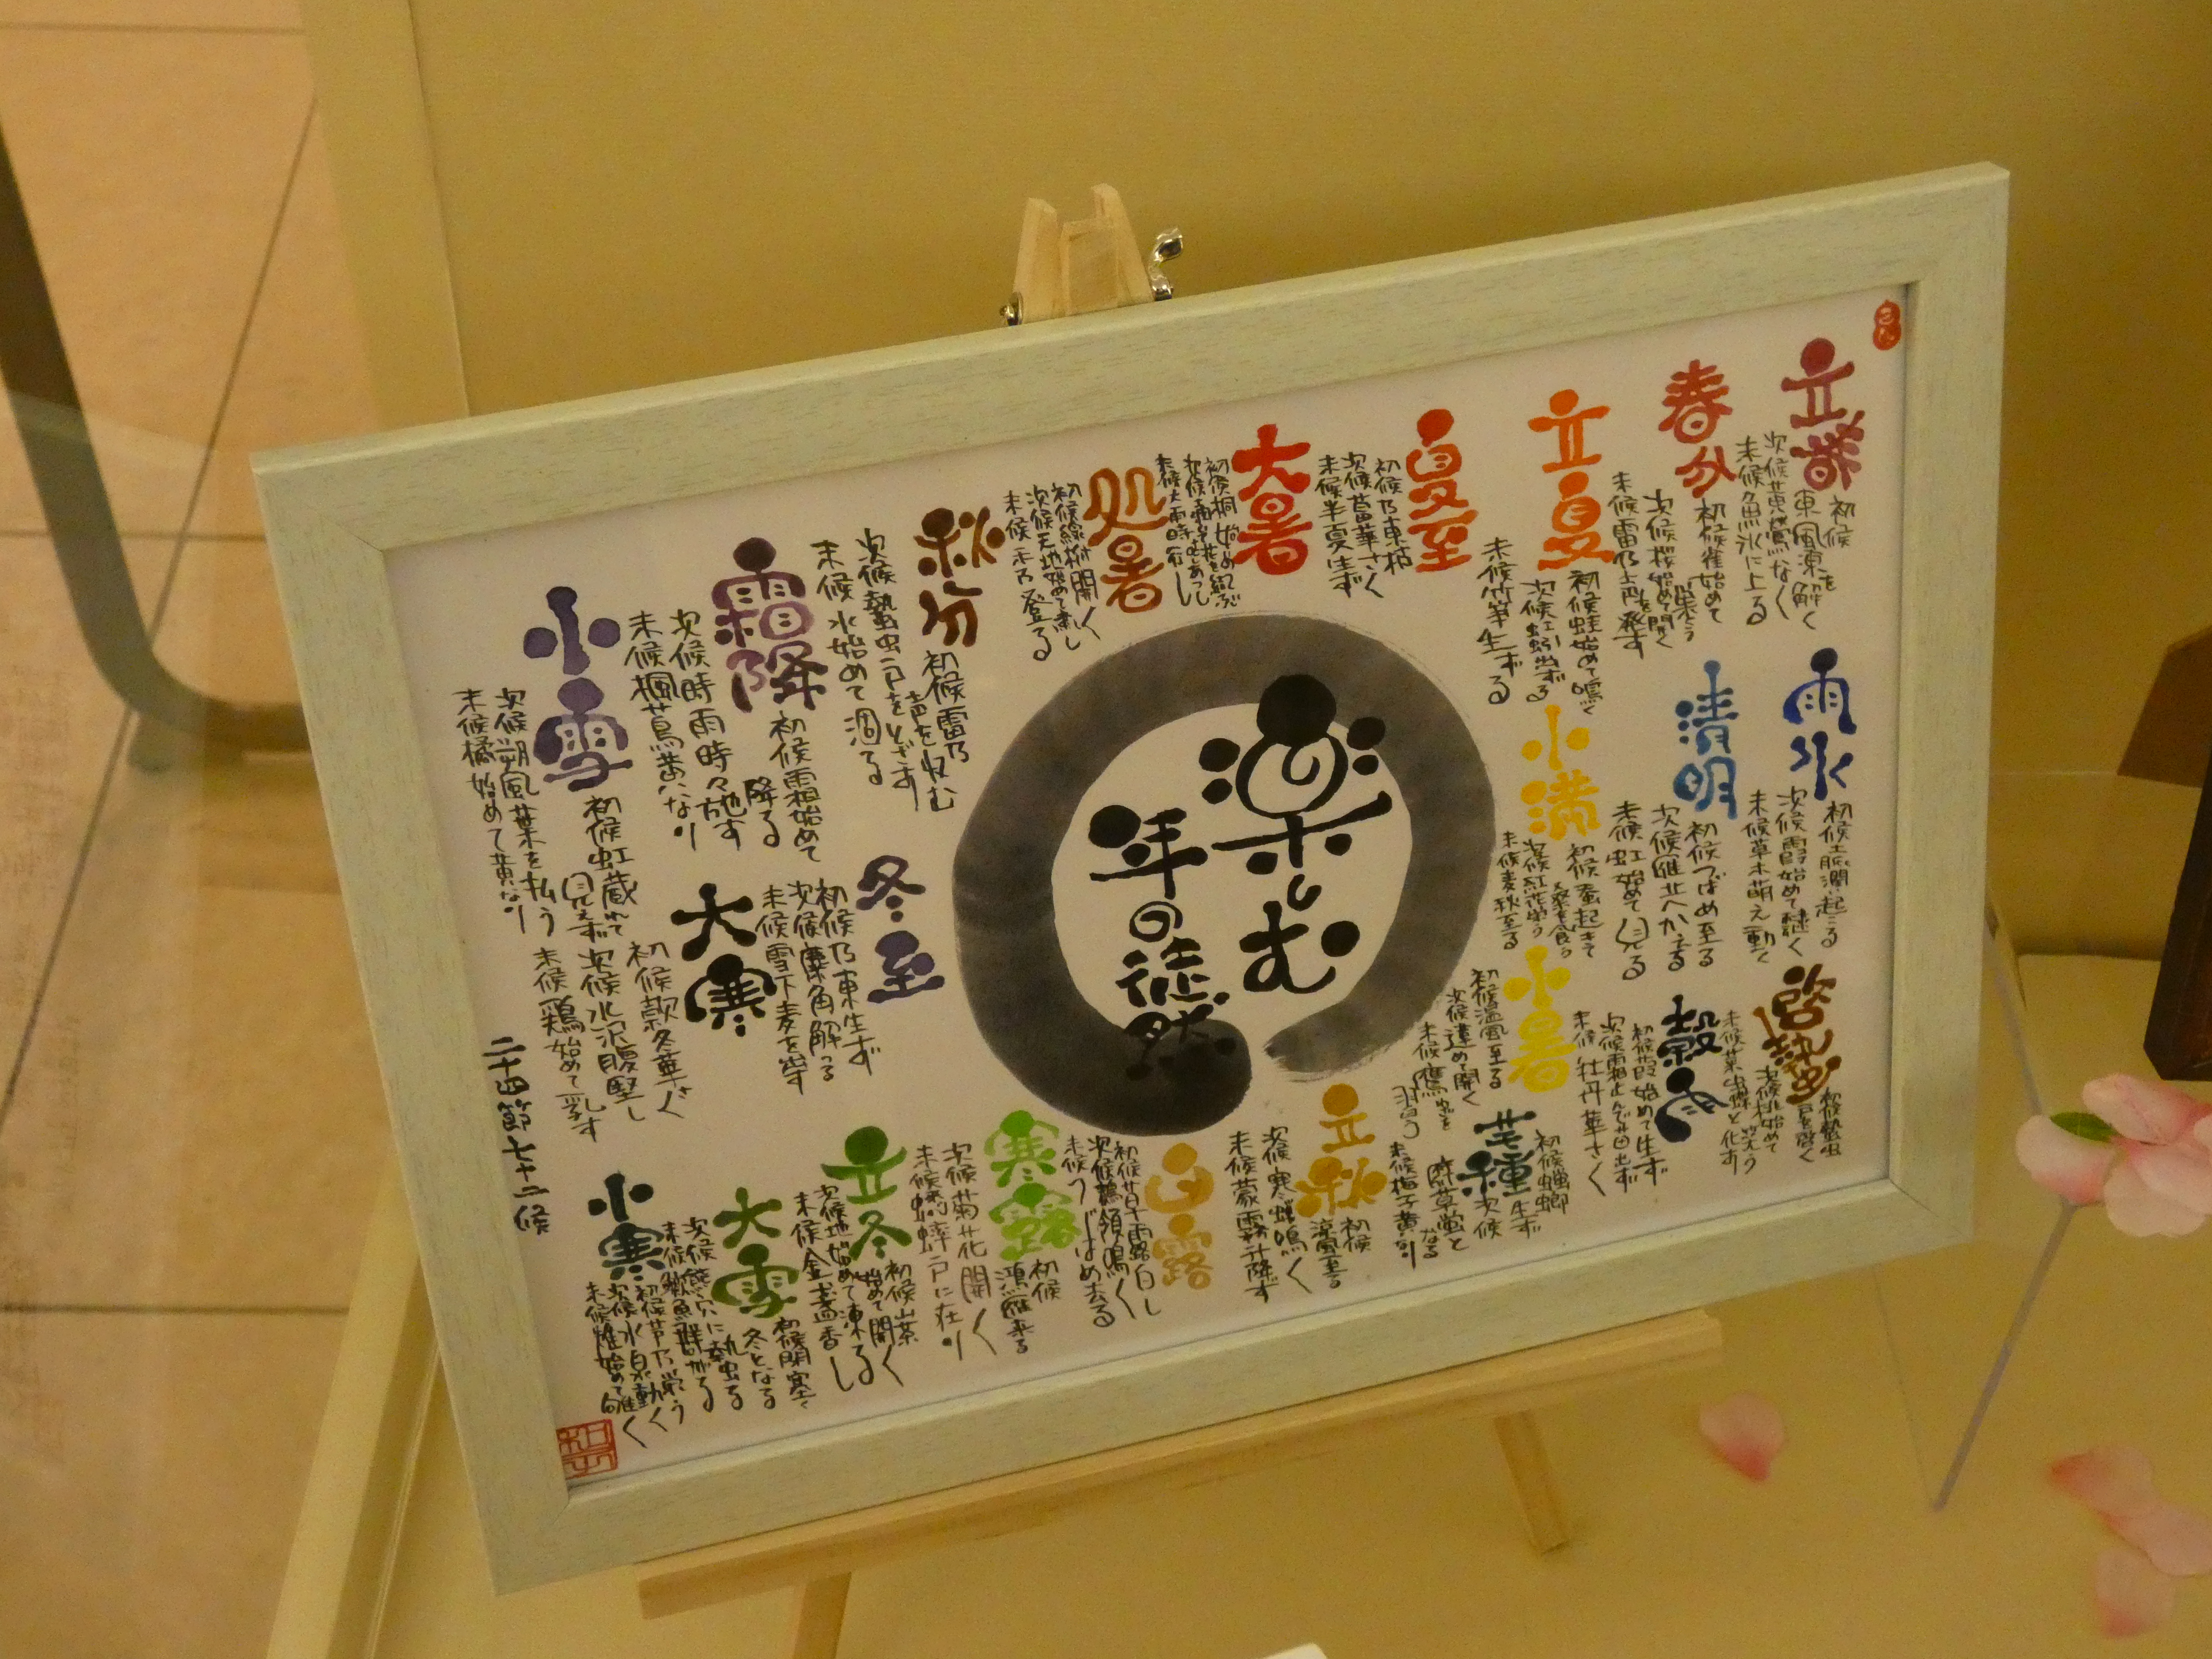 立春
初候
東風凍を解く
次候黄鶯なく
末候魚氷に上る
雨水
初候土脈潤い起こる
次候霞始めて棚びく
末候草木萌え動く
啓蟄
初候蟄虫
戸を啓く
次候桃始めて
笑う
末候菜虫蝶と化す
春分
初候雀始めて
巣くう
次候桜始めて開く
末候雷乃ち声を発す
清明
初候つばめ至る
次候雁北へかえる
末候虹始めて見る
穀雨
初候葭始めて生ず
次候霜止んで苗出ず
末候牡丹華さく
立夏
初候蛙始めて鳴く
次候蚯蚓出ずる
末候竹笋生ずる
小満
初候蚕起きて
桑を食う
次候紅花栄う
末候麦秋至る
芒種
初候蟷螂
生ず
次候
腐草蛍と
なる
末候梅子黄なり
夏至
初候乃東枯
次候菖蒲華さく
末候半夏生ず
小暑
初候温風至る
次候蓮始めて開く
末候鷹
習う
大暑
初候桐始めて花を結ぶ
次候
末候大雨時行
立秋
初候
涼風至る
次候寒蝉鳴く
末候蒙霧升降す
処暑
初候綿柎開く
次候天地始めて粛し
末候禾乃登る
白露
初候草露白し
次候鶺鴒鳴く
末候つばめ去る
秋分
初候雷乃
声を収む
次候蟄虫戸をとざす
末候水始めて涸る
寒露
初候
鴻雁来る
次候菊花開く
末候蟋蟀戸に在り
霜降
初候霜始めて
降る
次候時雨時々施す
末候楓蔦黄なり
立冬
初候山茶
始めて開く
次候地始めて凍る
末候金盞香し
小雪
初候虹蔵れて
見えず
次候朔風葉を払う
末候橘始めて黄なり
大雪
初候閉塞く
冬となる
次候熊穴に蟄る
末候鱖魚群がる
冬至
初候乃東生ず
次候麋角解つる
末候雪下麦を出す
小寒
初候芹乃栄う
次候水泉動く
末候雉始めて雊く
大寒
初候款冬華さく
次候水沢腹堅し
末候鶏始めて乳す
楽しむ
年の徒然
二十四節七十二候